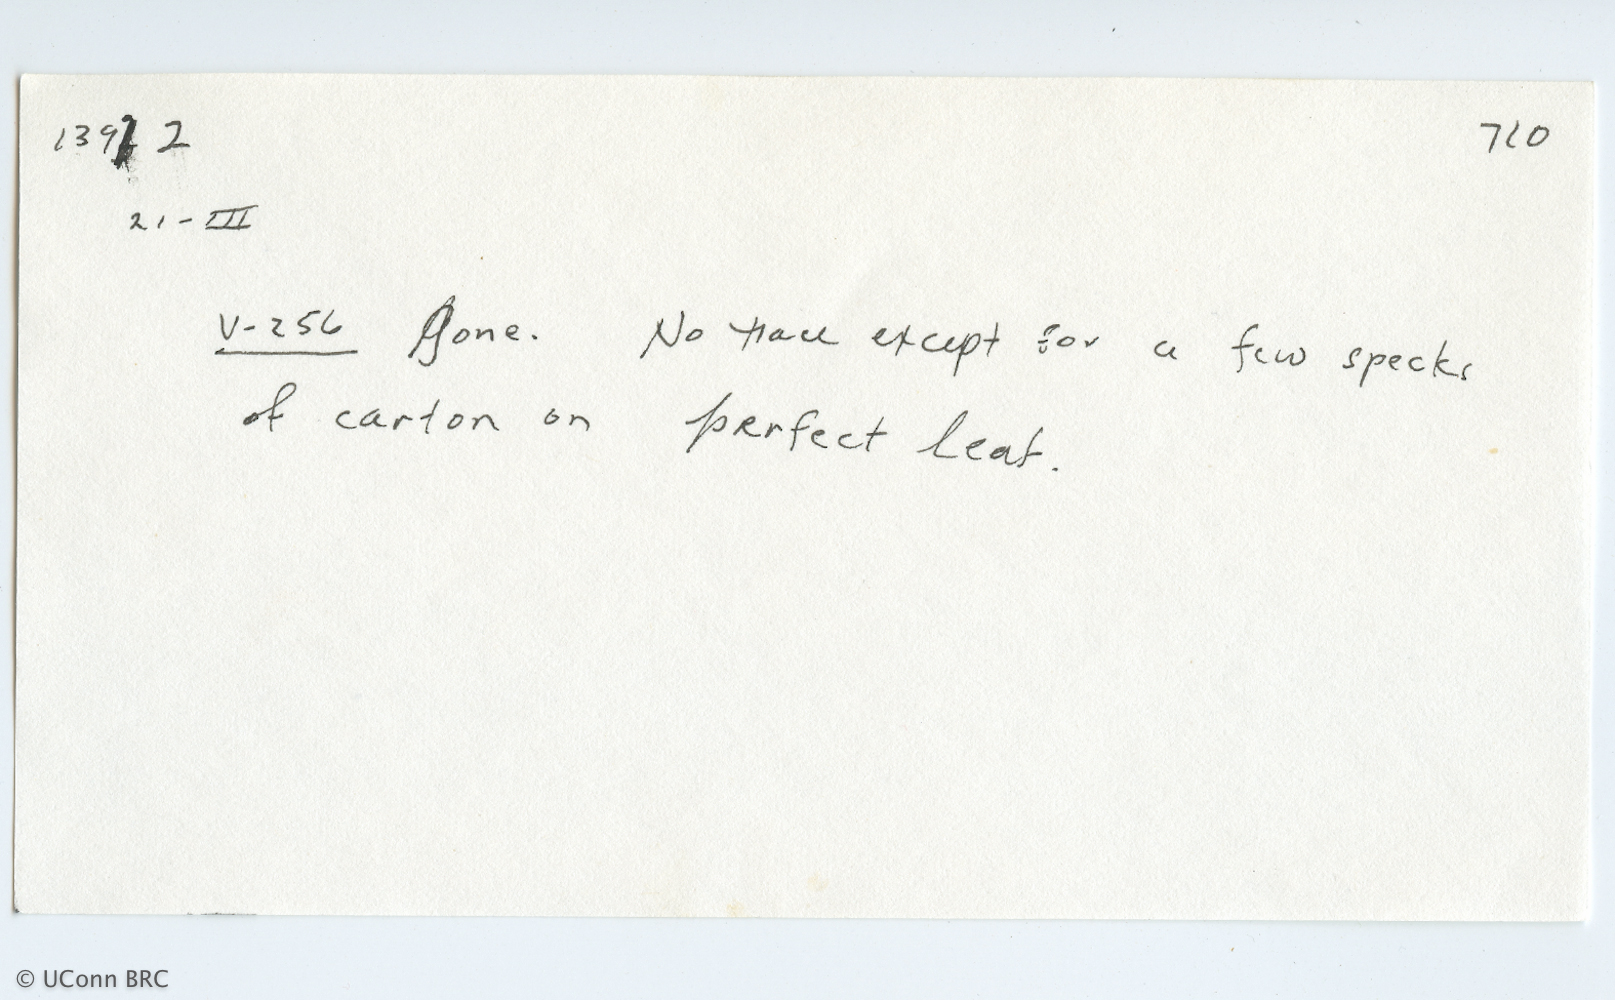 1392 710
21-III
V-256 Gone. No trace except for a few specks
of carton on perfect leaf.
© UConn BRC